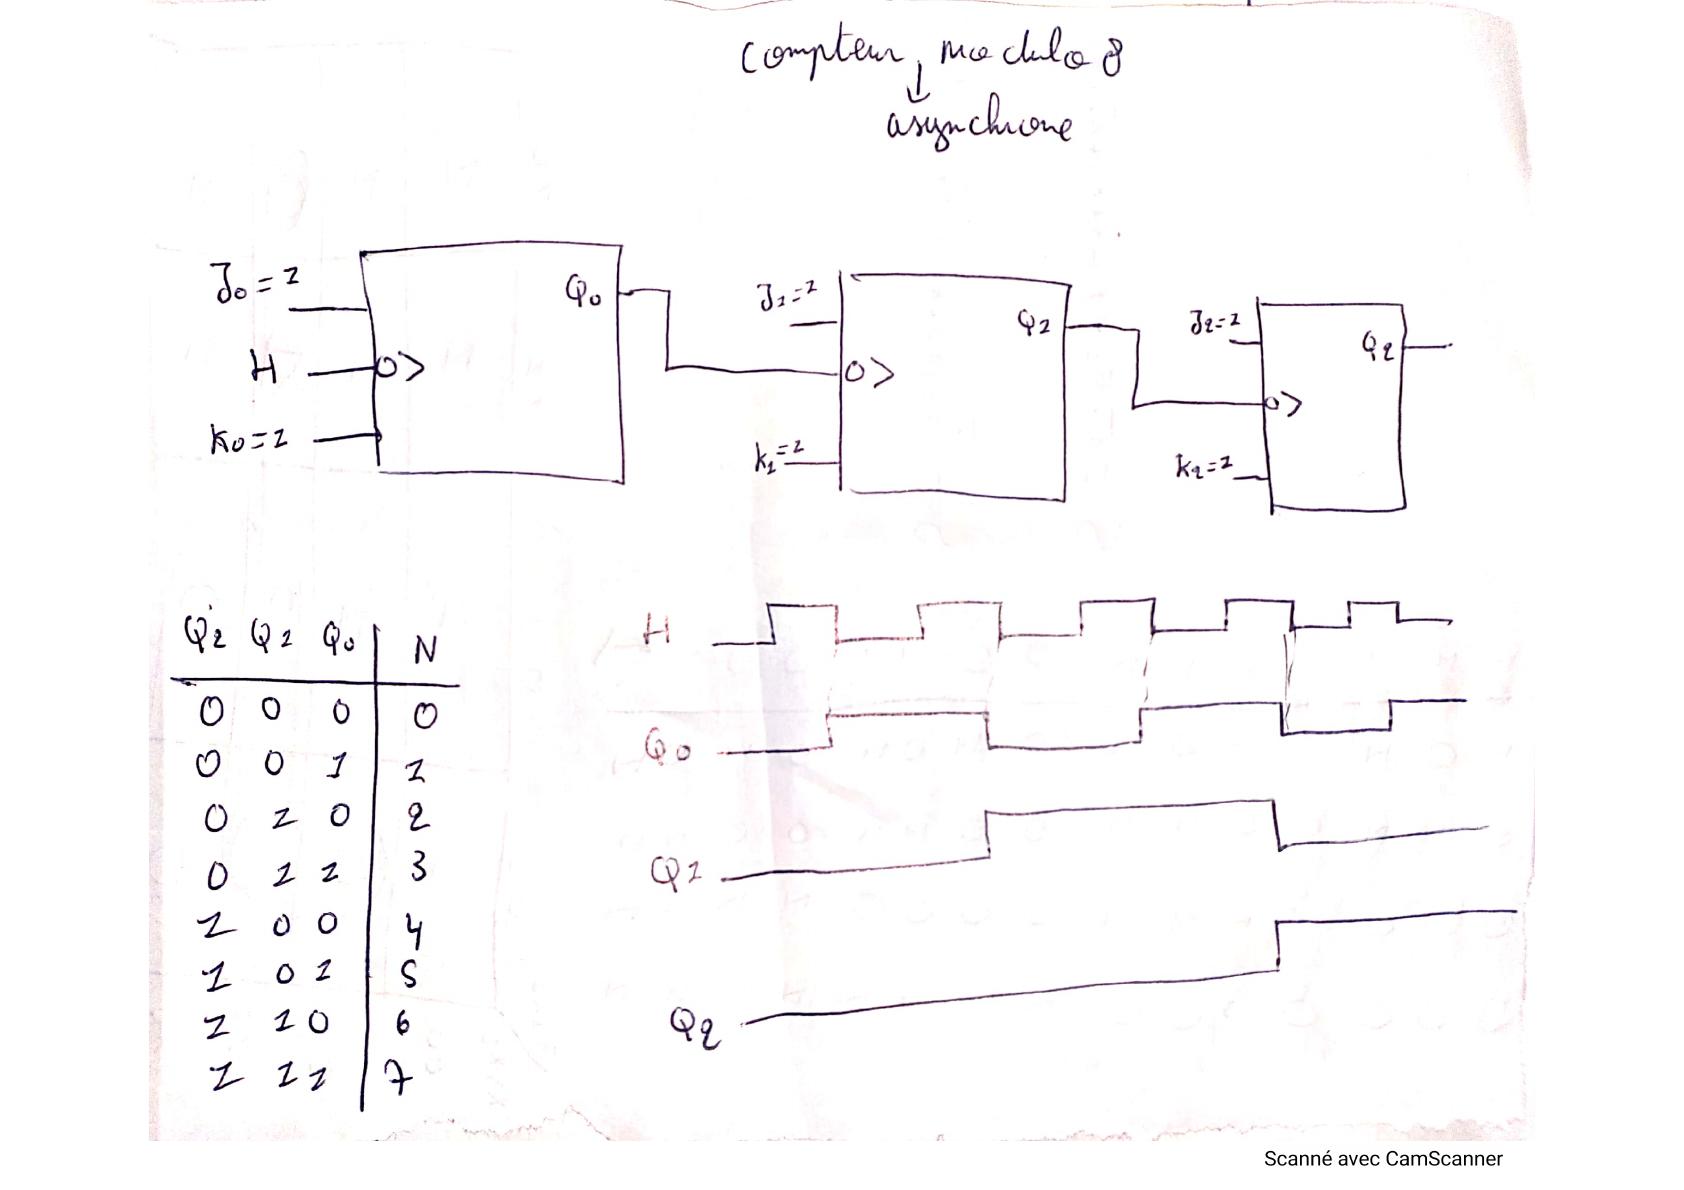 compteur, modulo 8
asynchrone
J0 = 1
H
K0 = 1
Q0
J1 = 1
K1 = 1
Q1
J2 = 1
K2 = 1
Q2
Q2 Q1 Q0 N
0 0 0 0
0 0 1 1
0 1 0 2
0 1 1 3
1 0 0 4
1 0 1 5
1 1 0 6
1 1 1 7
H
Q0
Q1
Q2
Scanné avec CamScanner